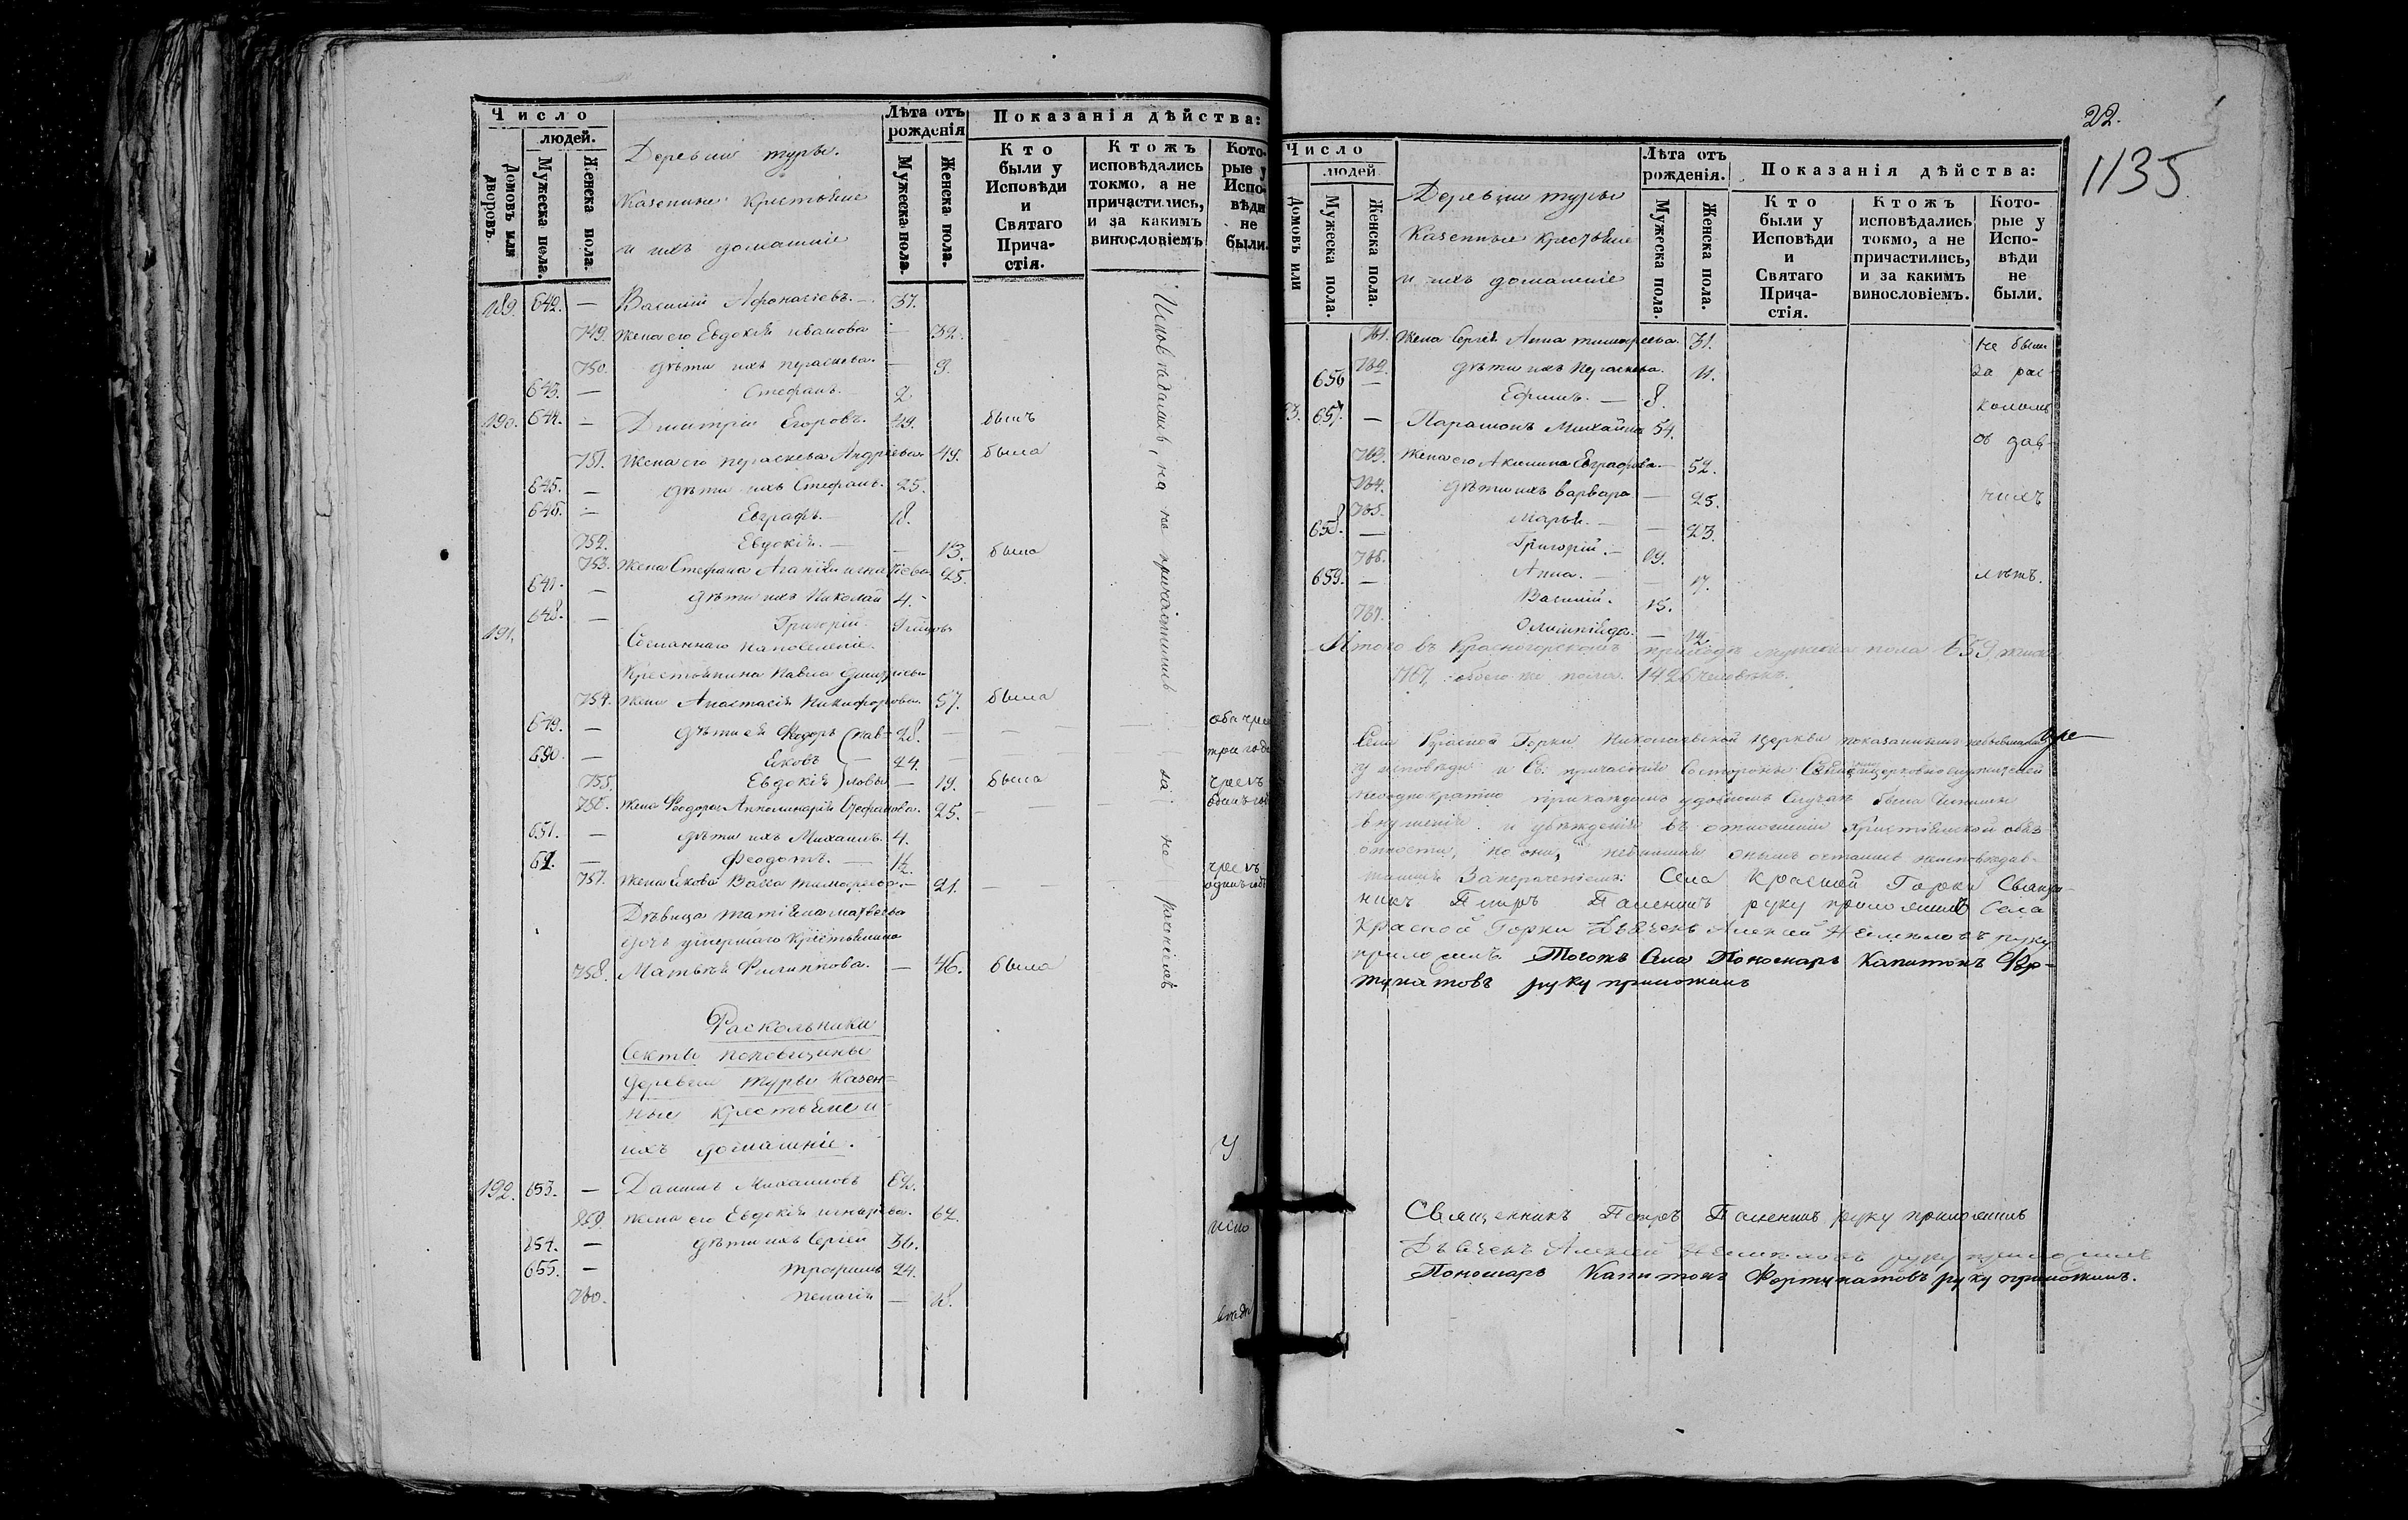 Число
людей.
Домовъ или дворовъ.
Мужеска пола.
Женска пола.
Деревни Туры.
Казенные Крестьяне
и ихъ домашніе
Лѣта отъ рожденія
Мужеска пола.
Женска пола.
Показанія дѣйства:
Кто были у Исповѣди и Святаго Прича-стія.
Ктожъ исповѣдались токмо, а не причастились, и за какимъ винословіемъ
Кото-рые у Испо-вѣди не были.
189. 642. — Василій Афонасіевъ. — 37.
749. Жена его Евдокія Иванова — 32.
750. Дѣти ихъ Параскева. — 9.
643. — Стефанъ. — 2
190. 644. — Дмитрій Егоровъ. 49. былъ
751. Жена его Параскева Андреева. 49. была
645. — Дѣти ихъ Стефанъ. 25.
646. — Евграфъ. — 18.
752. Евдокія. — — 13. была
753. Жена Стефана Агапія Игнатіева 25.
647. — Дѣти ихъ Николай 4. -
648. — Григорій.
191. Сосланнаго на поселеніе
Крестьянина Павла Дмитріева
754. Жена Анастасія Никифорова. 57. была
649. — Дѣти ея Федоръ (Пав= 28. — —
650. — Яковъ — 24. —
755. Евдокія ) ловы — 19. была
756. Жена Феодора Апполинарія Стефанова. 25. —
651. — Дѣти ихъ Михаилъ. 4.
— Феодотъ. — 1½.
757. Жена Якова Васса Тимофеева. — 21. — —
Дѣвица Татіяна Матвеева
дочь умершаго Крестьянина
758. Матвѣя Филиппова. — 46. была
Исповѣдались, на не причастились за нераченіемъ
три года
чрезъ
чрезъ
одинъ годъ
Раскольники
Секты Поповщины
Деревни Туры Казен=
ные Крестьяне и
ихъ домашніе.
192. 653. — Даніилъ Михаиловъ 62.
859. Жена его Евдокія 62.
654. — Дѣти ихъ Сергей 36.
655. — Трофимъ 24.
760. Пелагія — 18.
У
испо
22.
1135
Число
людей
Домовъ или
Мужеска пола.
Женска пола.
Деревни Туры
Казенные Крестьяне
и ихъ домашніе
Лѣта отъ рожденія.
Мужеска пола.
Женска пола.
Показанія дѣйства:
Кто были у Исповѣди и Святаго Прича-стія.
Ктожъ исповѣдались токмо, а не причастились, и за какимъ винословіемъ.
Кото-рые у Испо-вѣди не были.
761. Жена Сергея Анна Тимофеева. 31. не были
762. Дѣти ихъ Параскева. 11. за рас-
656 — Ефимъ. — 8. коломъ
3. 657. — Парамонъ Михайловъ 54. съ дав-
763. Жена его Акилина Евграфова. — 52.
764. Дѣти ихъ Варвара — 25. нихъ
765. Марья. — — 23.
658. — Григорій. — 19.
766. Анна. — — 17. лѣтъ.
659. — Василій. 15.
767. Олимпіада. — 12
Итого въ Красногорскомъ приходѣ мужеска пола 659 женска
767, обоего же пола 1426 человѣкъ.
Села Красной Горки Николаевской Церкви показаннымъ небывшими
у исповѣди и Св. причастія со стороны Священноцерковнослужителей
неоднократно при каждомъ удобномъ случаѣ были чинимы
внушенія и убѣжденія въ отношеніи Христіянской обяз
анности, но они, не внимая онымъ остались неисповѣдав-
шимися за нераченіемъ: Села Красной Горки Священ-
никъ Петръ Паленинъ руку приложилъ Села
Красной Горки Дьячекъ Алексей руку
приложилъ Тогожъ Села Пономарь Капитонъ Фор-
тунатовъ руку приложилъ
Священникъ Петръ Паленинъ руку приложилъ
Дьячекъ Алексей руку приложилъ
Пономарь Капитонъ Фортунатовъ руку приложилъ.